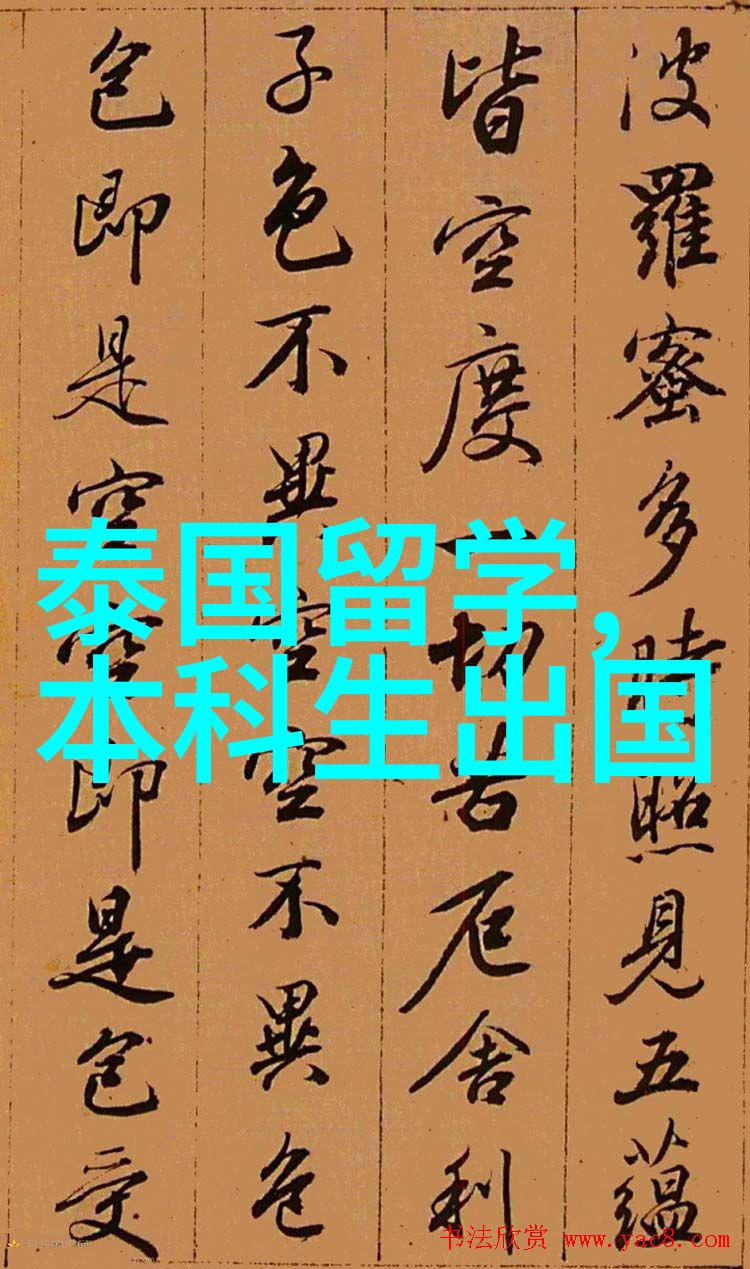 波羅蜜多時照見五蘊
皆空度一切苦厄舍利
子色不異空空不異色
色即是空空即是色受
泰国留学,
本科生出国
书法欣赏 www.yac8.com